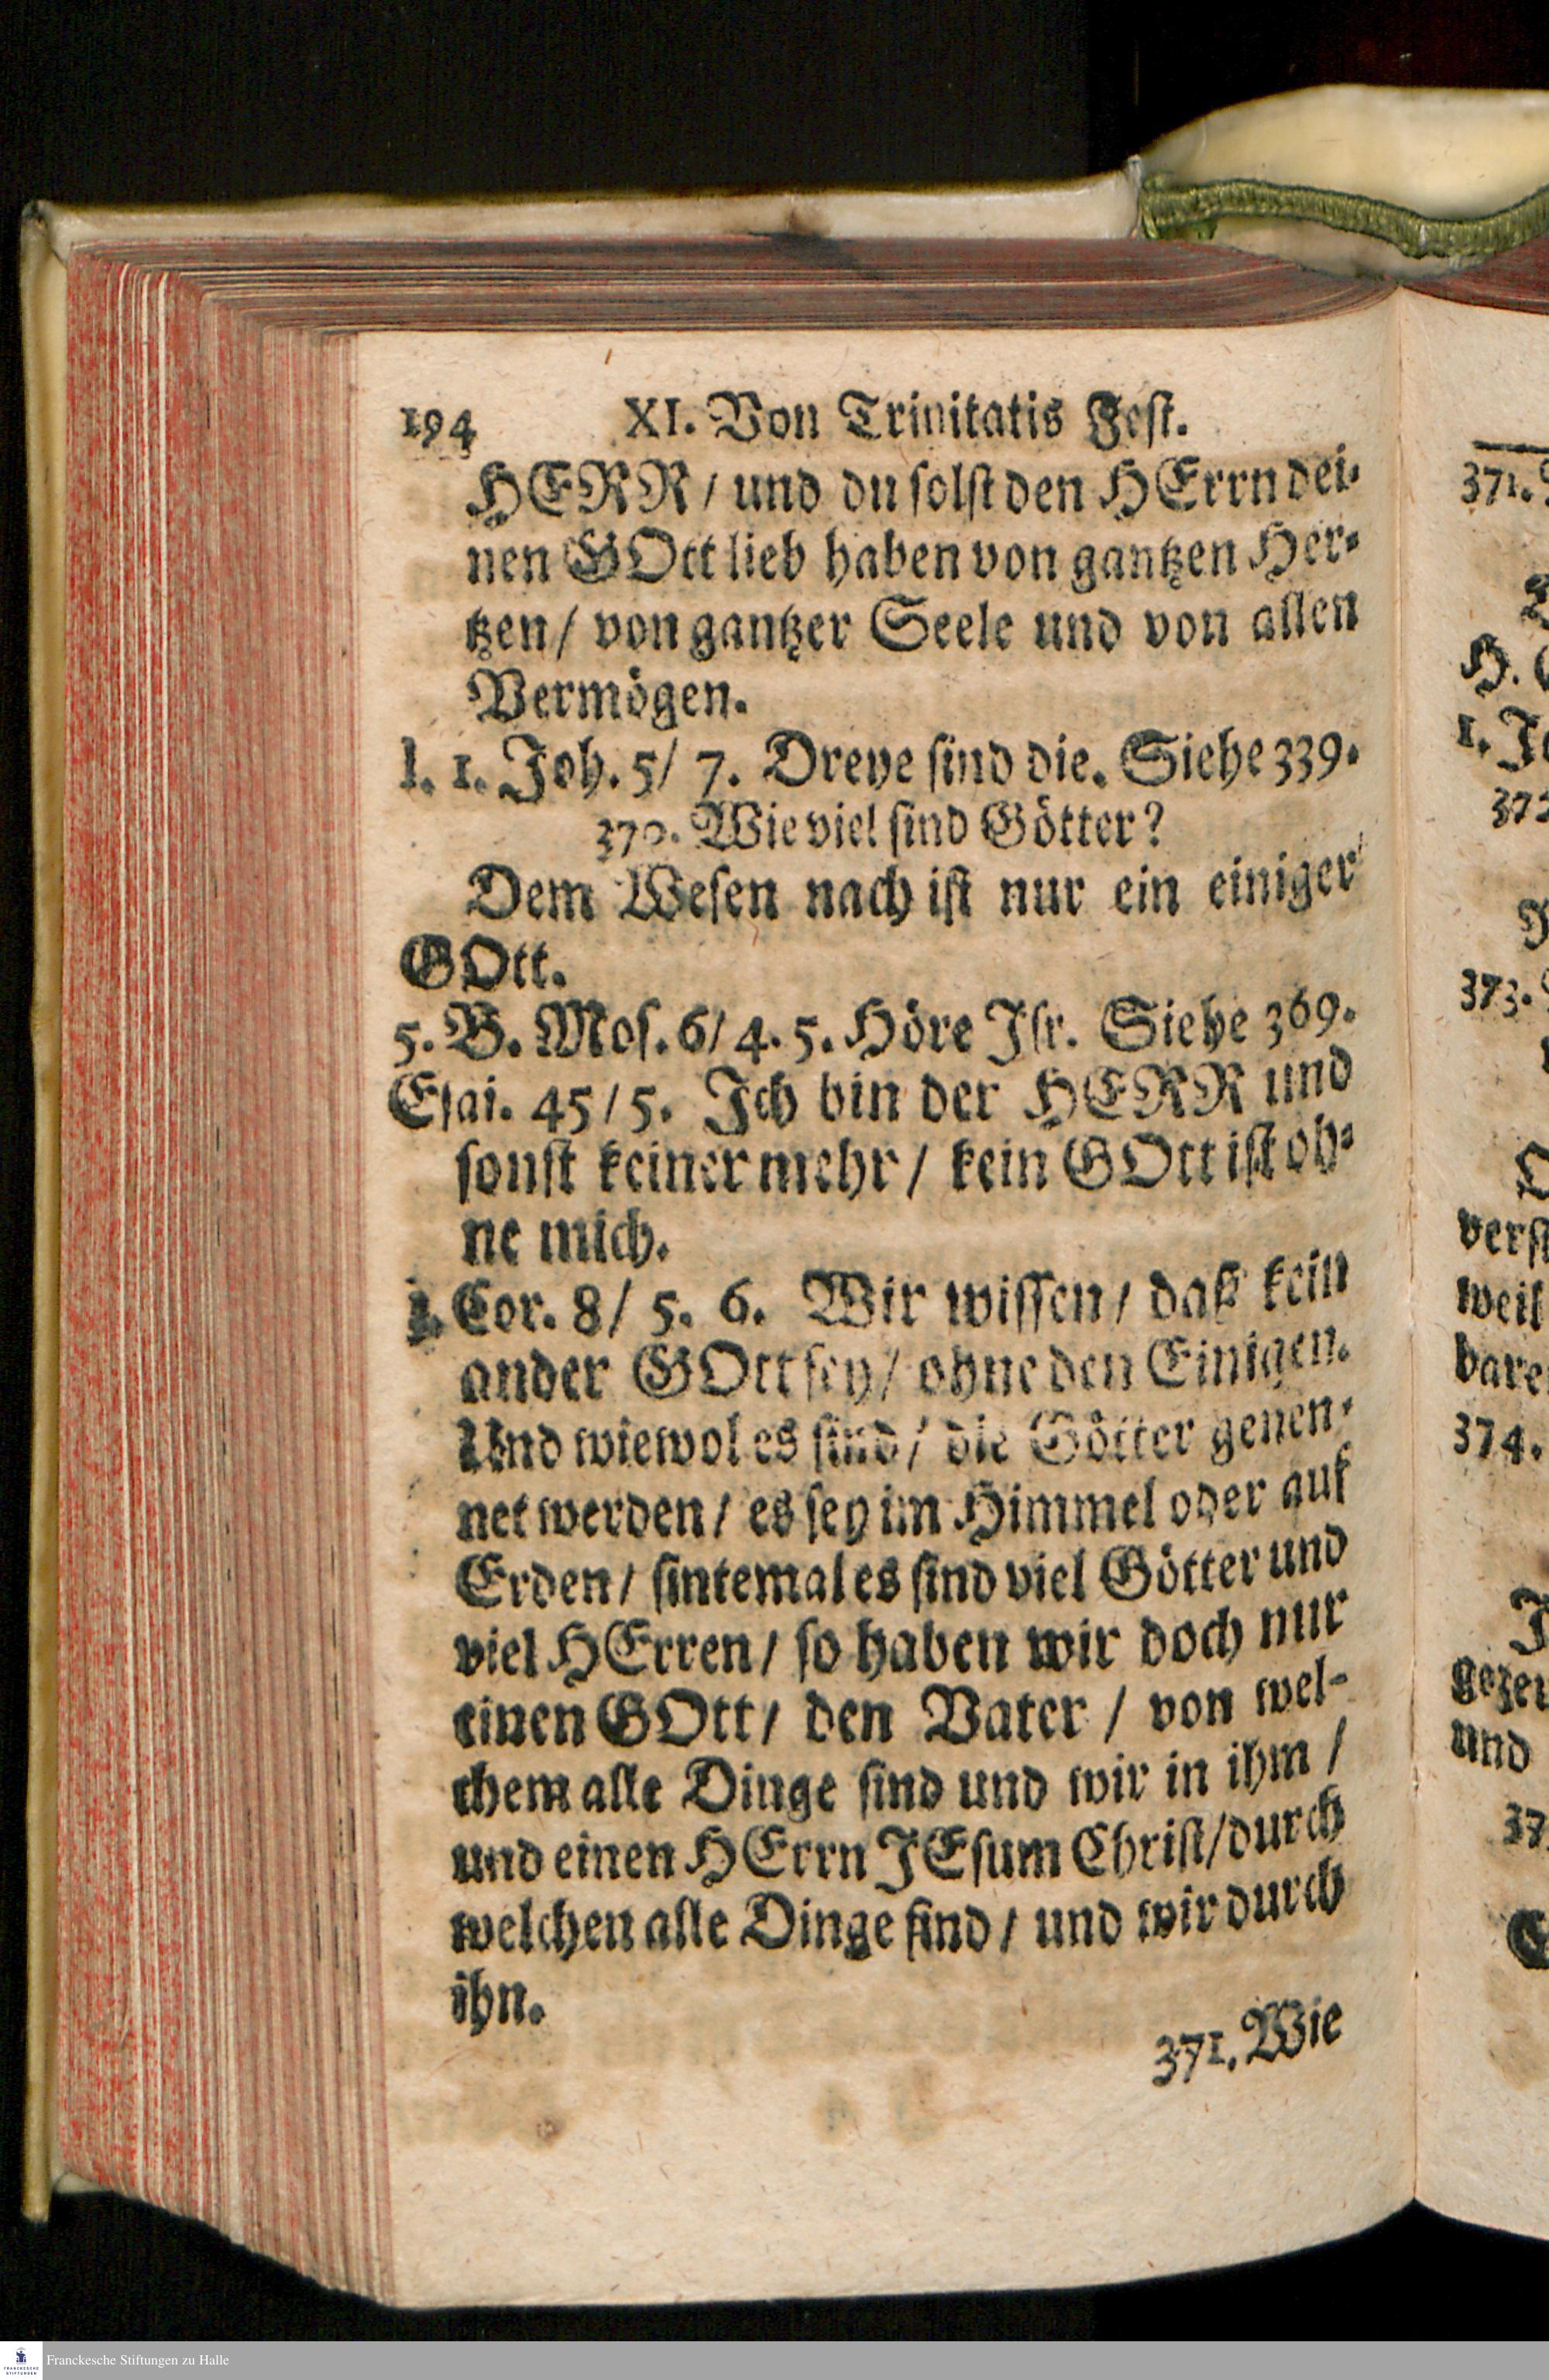 194 XI. Von Trinitatis Fest.
HERR / und du solst den HErrn dei-
nen GOtt lieb haben von gantzen Her-
tzen / von gantzer Seele und von allen
Vermögen.
l. 1. Joh. 5 / 7. Dreye sind die. Siehe 339.
370. Wie viel sind Götter?
Dem Wesen nach ist nur ein einiger
GOtt.
5. B. Mos. 6 / 4. 5. Höre Isr. Siehe 369.
Esai. 45 / 5. Ich bin der HERR und
sonst keiner mehr / kein GOtt ist oh-
ne mich.
Cor. 8 / 5. 6. Wir wissen / daß kein
ander GOtt sey / ohne den Einigen.
Und wiewol es sind / die Götter genen-
net werden / es sey im Himmel oder auf
Erden / sintemal es sind viel Götter und
viel HErren / so haben wir doch nur
einen GOtt / den Vater / von wel-
chem alle Dinge sind und wir in ihm /
und einen HErrn JEsum Christ / durch
welchen alle Dinge sind / und wir durch
ihn.
371. Wie
371.
H.
1.
373.
verst
weil
bare
374.
und
Franckesche Stiftungen zu Halle